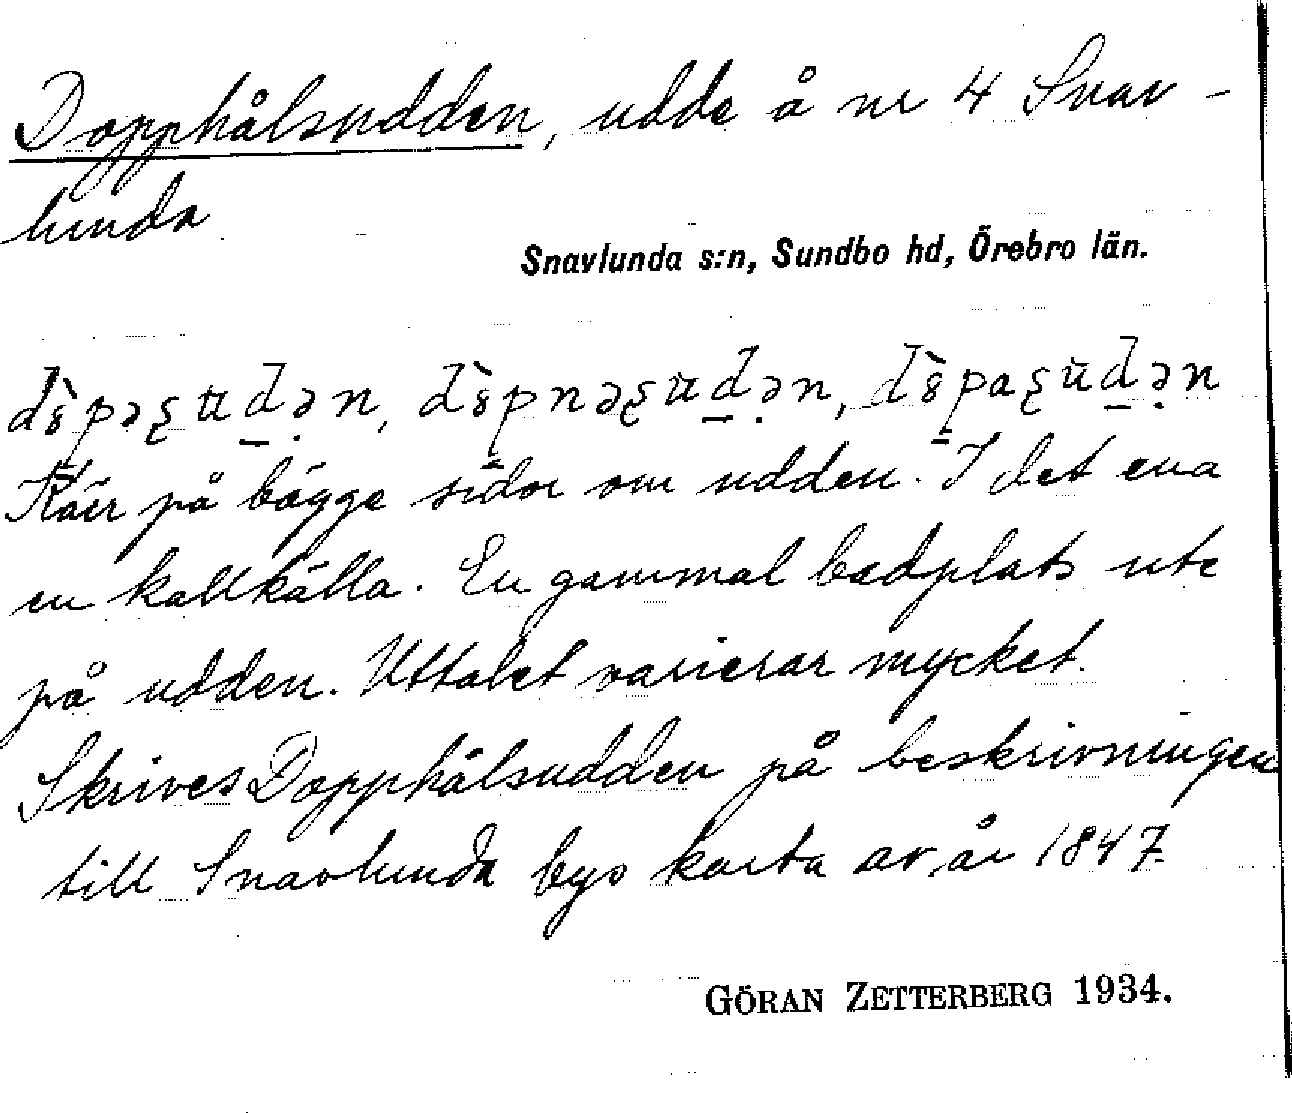 Dopphålsudden, udde å nr 4 Snav-
lunda
Snavlunda s:n, Sundbo hd, Örebro län.
Kärr på bägge sidor om udden. I det ena
en kallkälla. En gammal badplats ute
på udden. Uttalet varierar mycket.
Skrives Dopphålsudden på beskrivningen
till Snavlunda bys karta av år 1847.
GÖRAN ZETTERBERG 1934.